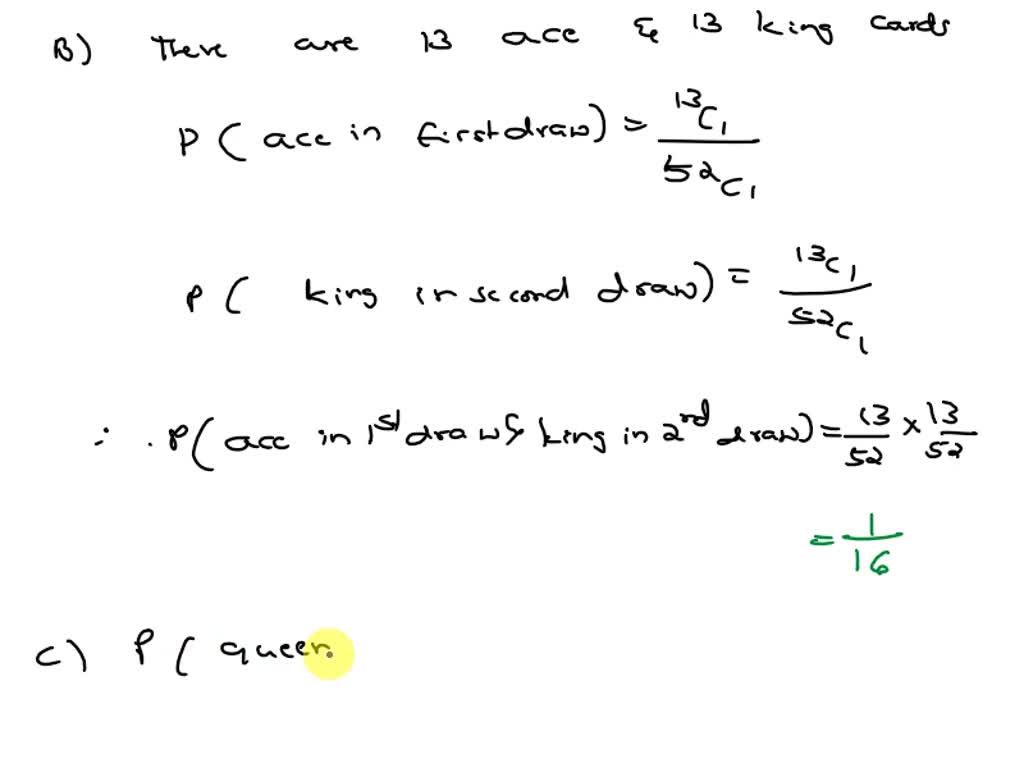 B) There are 13 ace & 13 king cards
P( acc in first draw) = 13C1 / 52C1
P( king in second draw) = 13C1 / 52C1
∴ P( acc in 1st draw & king in 2rd draw) = 13/52 × 13/52
= 1/16
C) P( queen